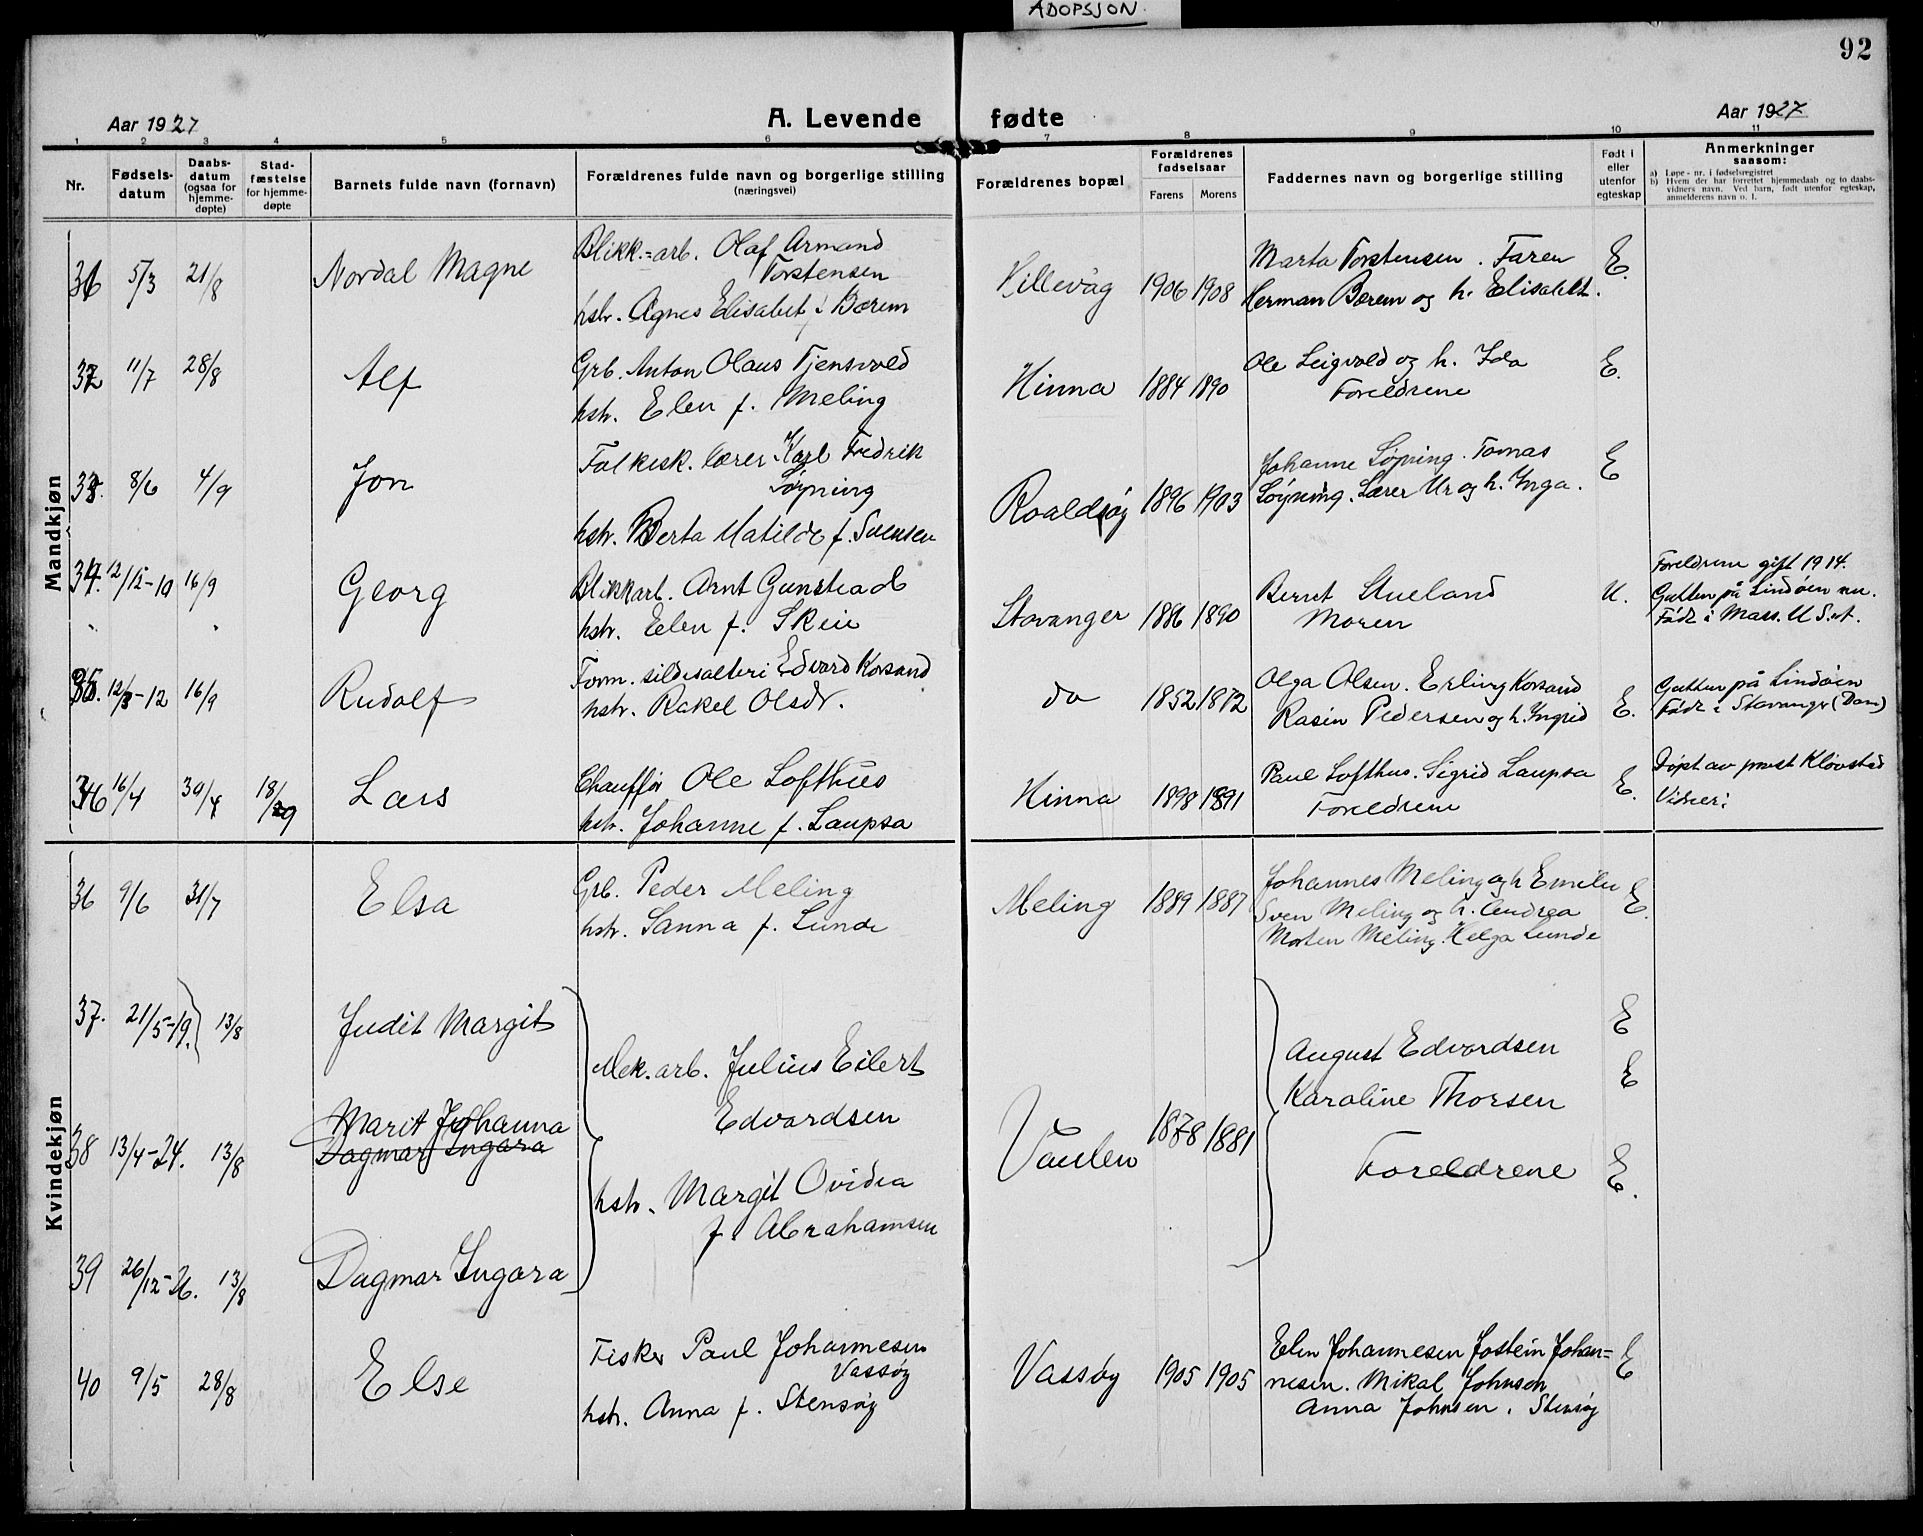 ADOPSJON.
92
Aar 1927
A. Levende fødte
Aar 1927
1 2 3 4 5 6 7 8 9 10 11
Nr.
Fødsels-
datum
Daabs-
datum
(ogsaa for
hjemme-
døpte)
Stad-
fæstelse
for hjemme-
døpte
Barnets fulde navn (fornavn)
Forældrenes fulde navn og borgerlige stilling
(næringsvei)
Forældrenes bopæl
Forældrenes
fødselsaar
Farens Morens
Faddernes navn og borgerlige stilling
Født i
eller
utenfor
egteskap
Anmerkninger
saasom:
a) Løpe-nr. i fødselsregistret
b) Hvem der har forrettet hjemmedaab og to daabs-
vidners navn. Ved barn, født utenfor egteskap,
anmelderens navn o. l.
Mandkjøn
31 5/3 21/8 Nordal Magne
Blikk.=arb. Olaf Armand
Torstensen
hstr. Agnes Elisabet f. Bærem
Hillevåg 1906 1908
Marta Torstensen. Faren
Herman Bærem og h. Elisabet.
E.
32 11/7 28/8 Alf
Grb. Anton Olaus Tjensvold
hstr. Elen f. Meling
Hinna 1884 1890
Ole Leigvold og h. Ida
Foreldrene
E.
33. 8/6 4/9 Jon
Folkesk. lærer Karl Fredrik
Løyning
hstr. Berta Matilde f. Svensen
Roaldsøy 1896 1903
Johanne Løyning. Tomas
Løyning. Lærer Ur og h. Inga.
E
34. 12/12-10 16/9 Georg
Blikkarb. Arnt Gunstead
hstr. Elen f. Skeie
Stavanger 1886 1890
Bernt Stueland
Moren
U.
Foreldrene gift 1914.
Gutten på Lindøen nu.
Født i Mass. U.S.A.
35. 12/3-12 16/9 Rudolf
Form. sildesalteri Edvard Korsand
hstr. Rakel Olsdr.
do 1852 1872
Olga Olsen. Erling Korsand
Rasin Pedersen og h. Ingrid
E.
Gutten på Lindøen
Født i Stavanger (Dom)
36 16/4 30/4 18/9 Lars
Chauffør Ole Lofthus
hstr. Johanne f. Laupsa
Hinna 1898 1891
Paul Lofthus. Sigrid Laupsa
Foreldrene
E.
Døpt av prest Kløvstad
Vidner:
Kvindekjøn
36 9/6 31/7 Elsa
Grb. Peder Meling
hstr. Sanna f. Lunde
Meling 1889 1887
Johannes Meling og h. Emilie
Sven Meling og h. Andrea
Morten Meling. Helga Lunde
E.
37. 21/5-19. 13/8 Judit Margit
E
Mek. arb. Julius Eilert
Edvardsen
August Edvardsen
Karoline Thorsen
E
38 13/4-24. 13/8 Marit Johanna
Dagmar Ingara
Vaulen 1878 1881
hstr. Margit Ovidia
f. Abrahamsen
Foreldrene
E.
39 26/12-26. 13/8 Dagmar Ingara
40 9/5 28/8 Else
Fisker Paul Johannesen
Vassøy
hstr. Anna f. Stensøy
Vassøy 1905 1905
Elen Johannesen Jostein Johan=
nesen. Mikal Johnsen
Anna Johnsen. Stensøy
E